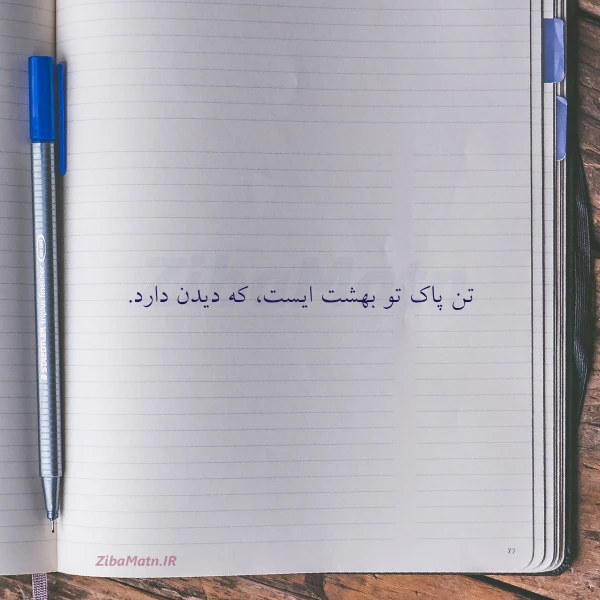 تن پاک تو بهشت ایست، که دیدن دارد.
77
ZibaMatn.IR